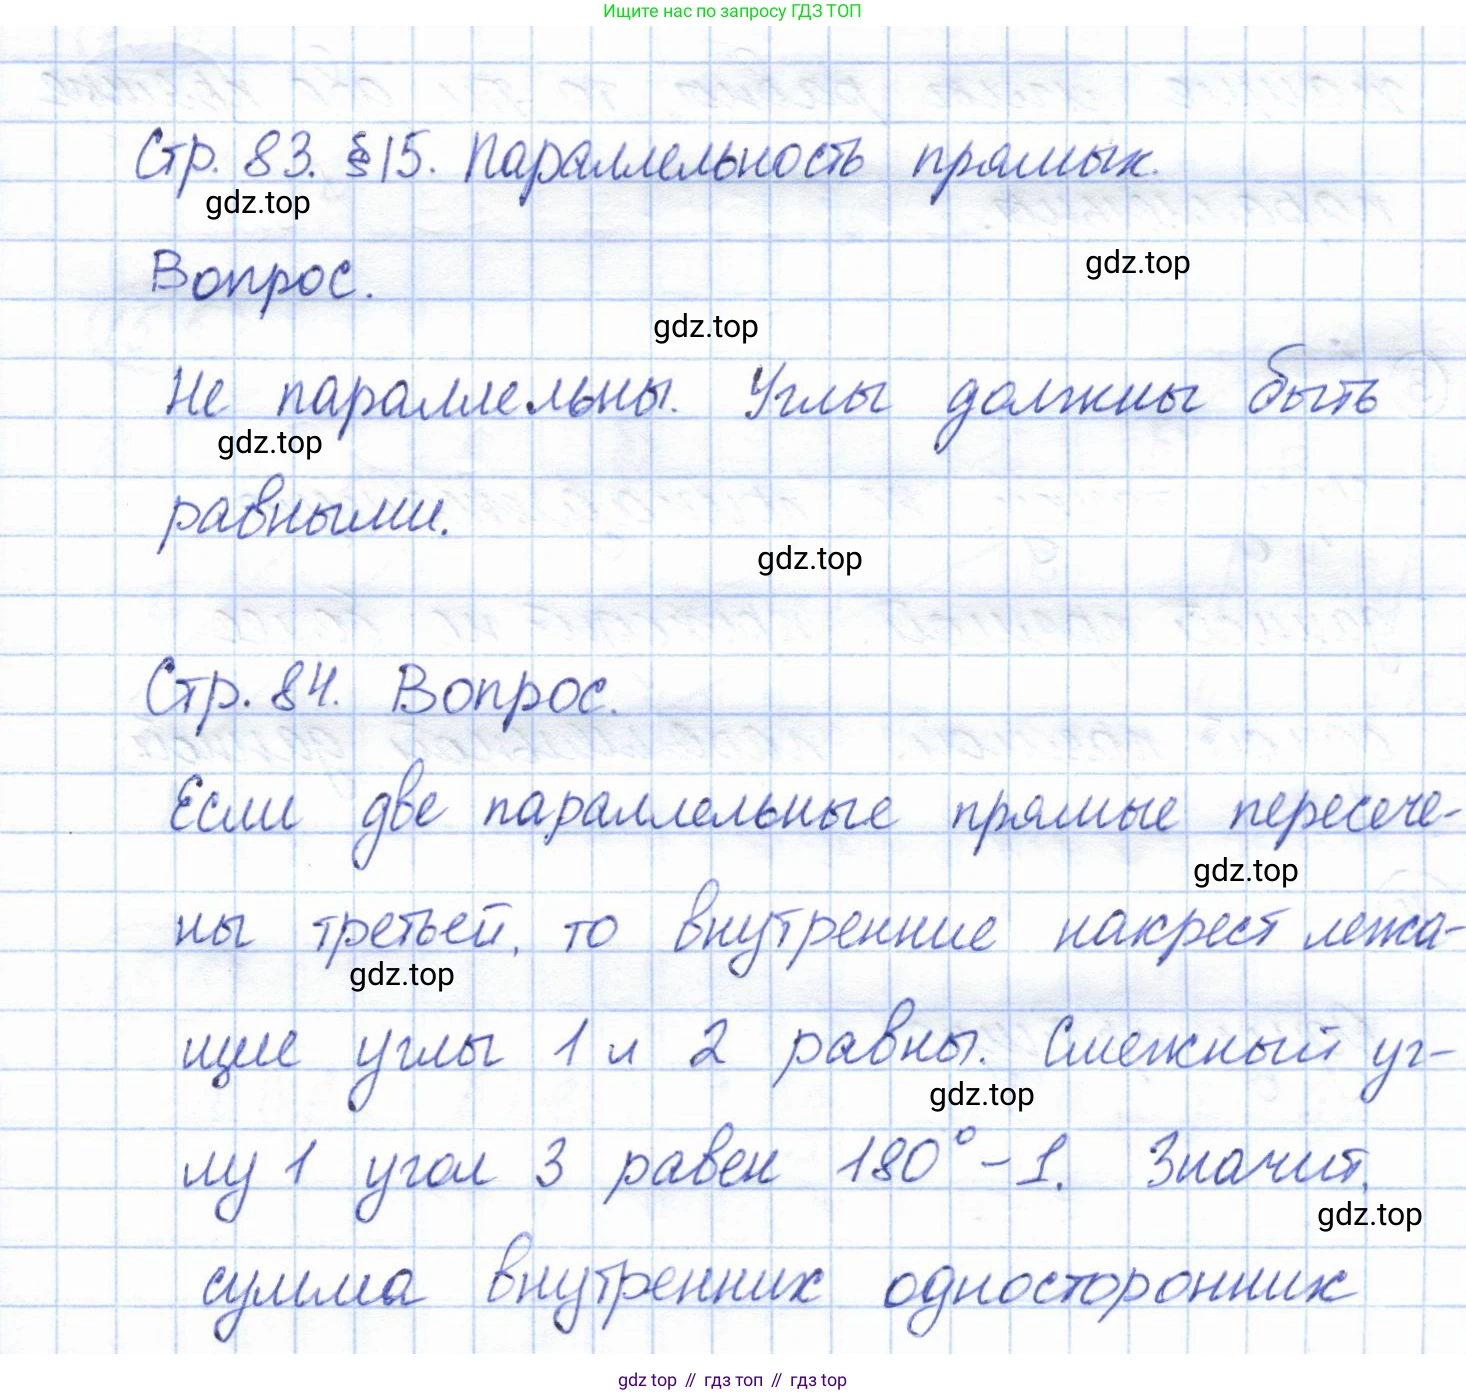 Ищите нас по запросу ГДЗ ТОП
Стр. 83. §15. Параллельность прямых.
gdz.top
Вопрос.
gdz.top
gdz.top
Не параллельны. Углы должны быть
gdz.top
равными.
gdz.top
Стр. 84. Вопрос.
Если две параллельные прямые пересече-
gdz.top
ны третьей, то внутренние накрест лежа-
gdz.top
щие углы 1 и 2 равны. Смежный уг-
gdz.top
лу 1 угол 3 равен 180° - 1. Значит,
gdz.top
сумма внутренних односторонних
gdz top // гдз топ // gdz top